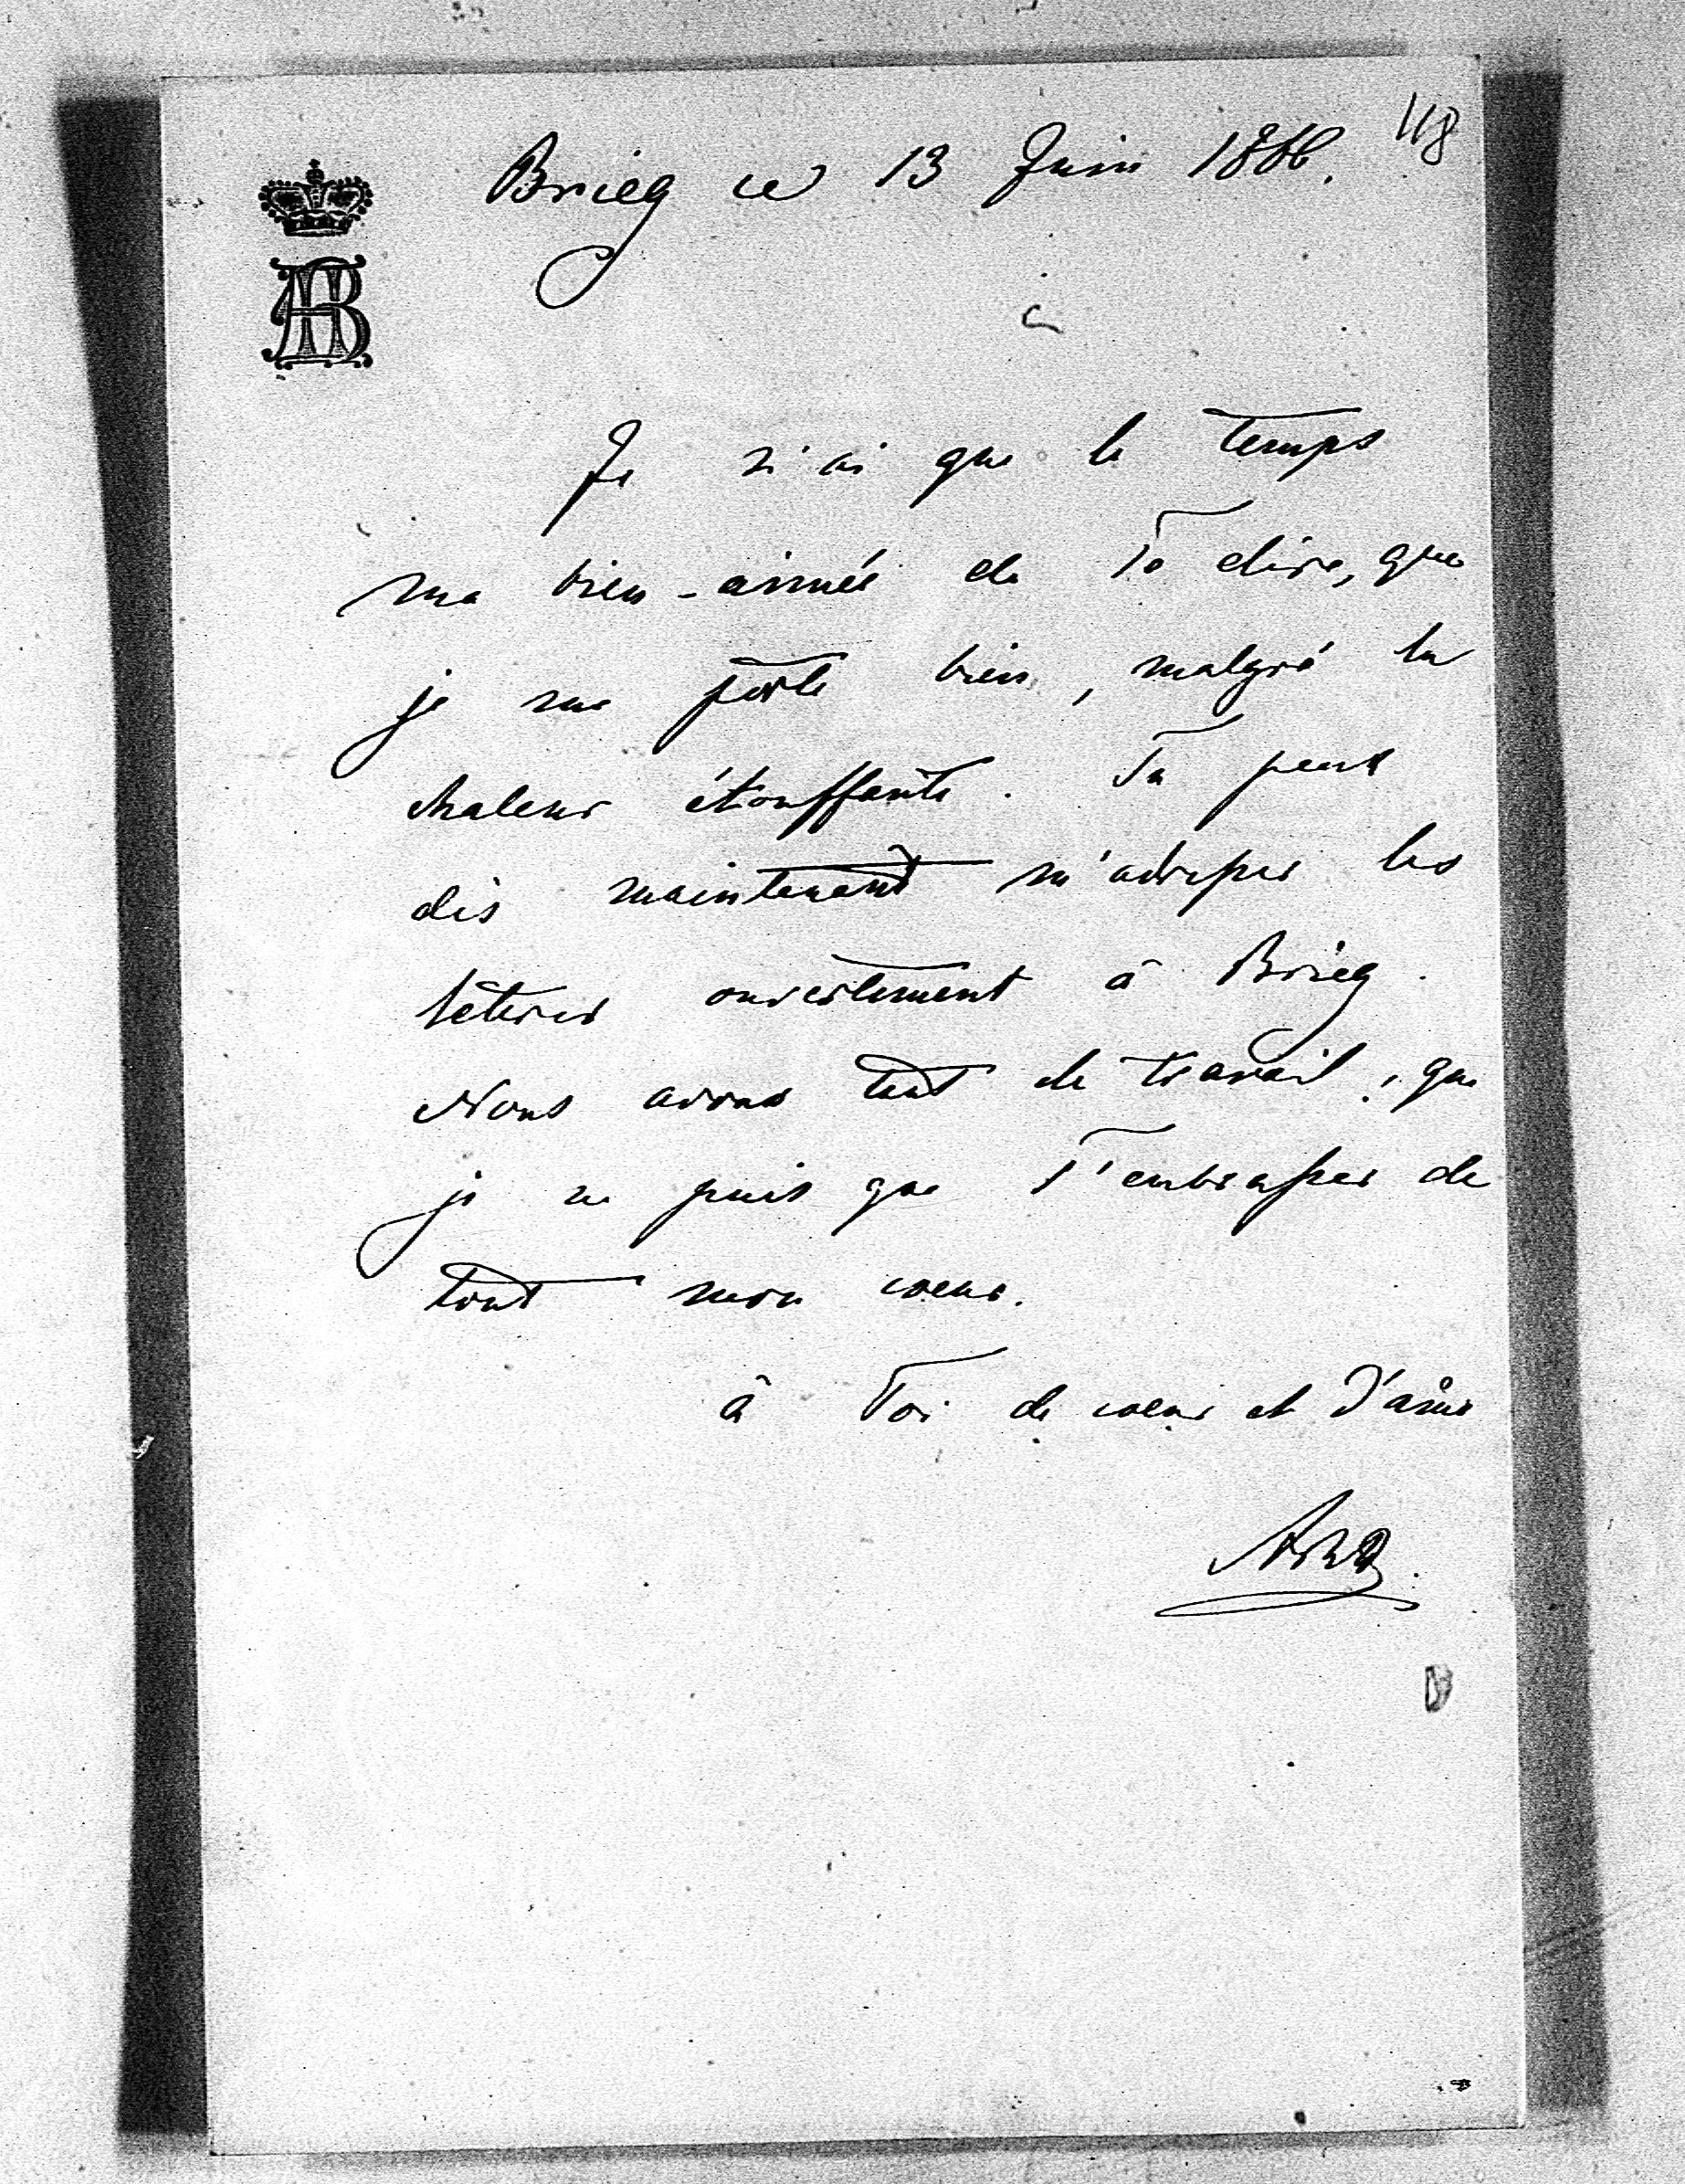 118
Brieg ce 13 Juin 1866.
AB
Je n'ai que le temps
ma bien-aimée de Te dire, que
je me porte bien, malgré la
chaleur étouffante. Tu peux
dès maintenant m'adresser les
lettres ouvertement à Brieg.
Nous avons tant de travail, que
je ne puis que T'embrasser de
tout mon coeur.
à Toi de coeur et d'âme